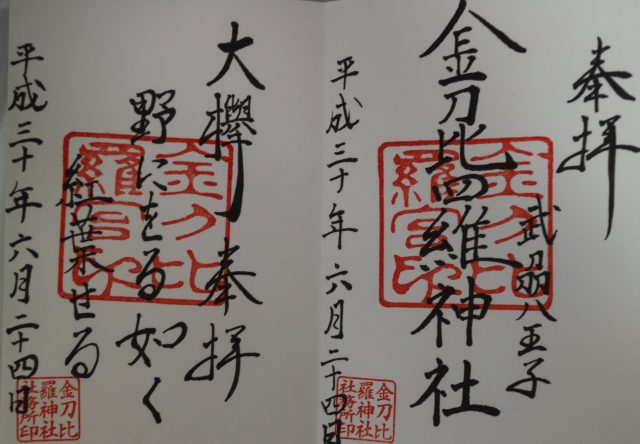 奉拝
武州八王子
金刀比羅神社
平成三十年六月二十四日
金刀比
羅宮印
金刀比
羅神社
社務所印
大欅 奉拝
野にをる如く
紅葉せる
平成三十年六月二十四日
金刀比
羅宮印
金刀比
羅神社
社務所印